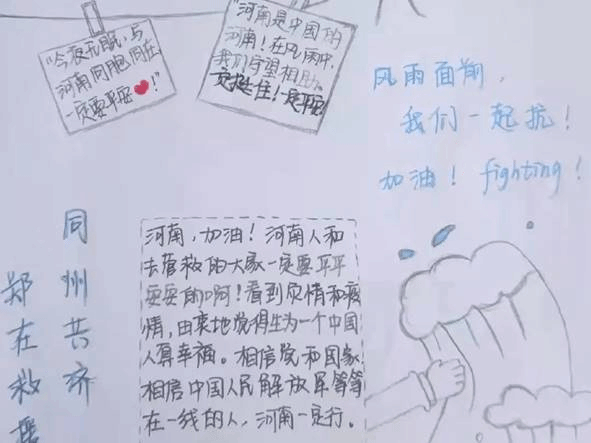 "今夜无眠,与
河南同胞同在
一定要平安❤!"
"河南是中国的
河南!在风雨中,
我们守望相助。
一定挺住!一定平安
风雨面前,
我们一起抗!
加油! fighting!
同州共济
郑在救援
河南,加油!河南人和
去营救的大家一定要平平
安安的啊!看到灾情和疫
情,由衷地觉得生为一个中国
人真幸福。相信党和国家
相信中国人民解放军等等
在一线的人,河南一定行。